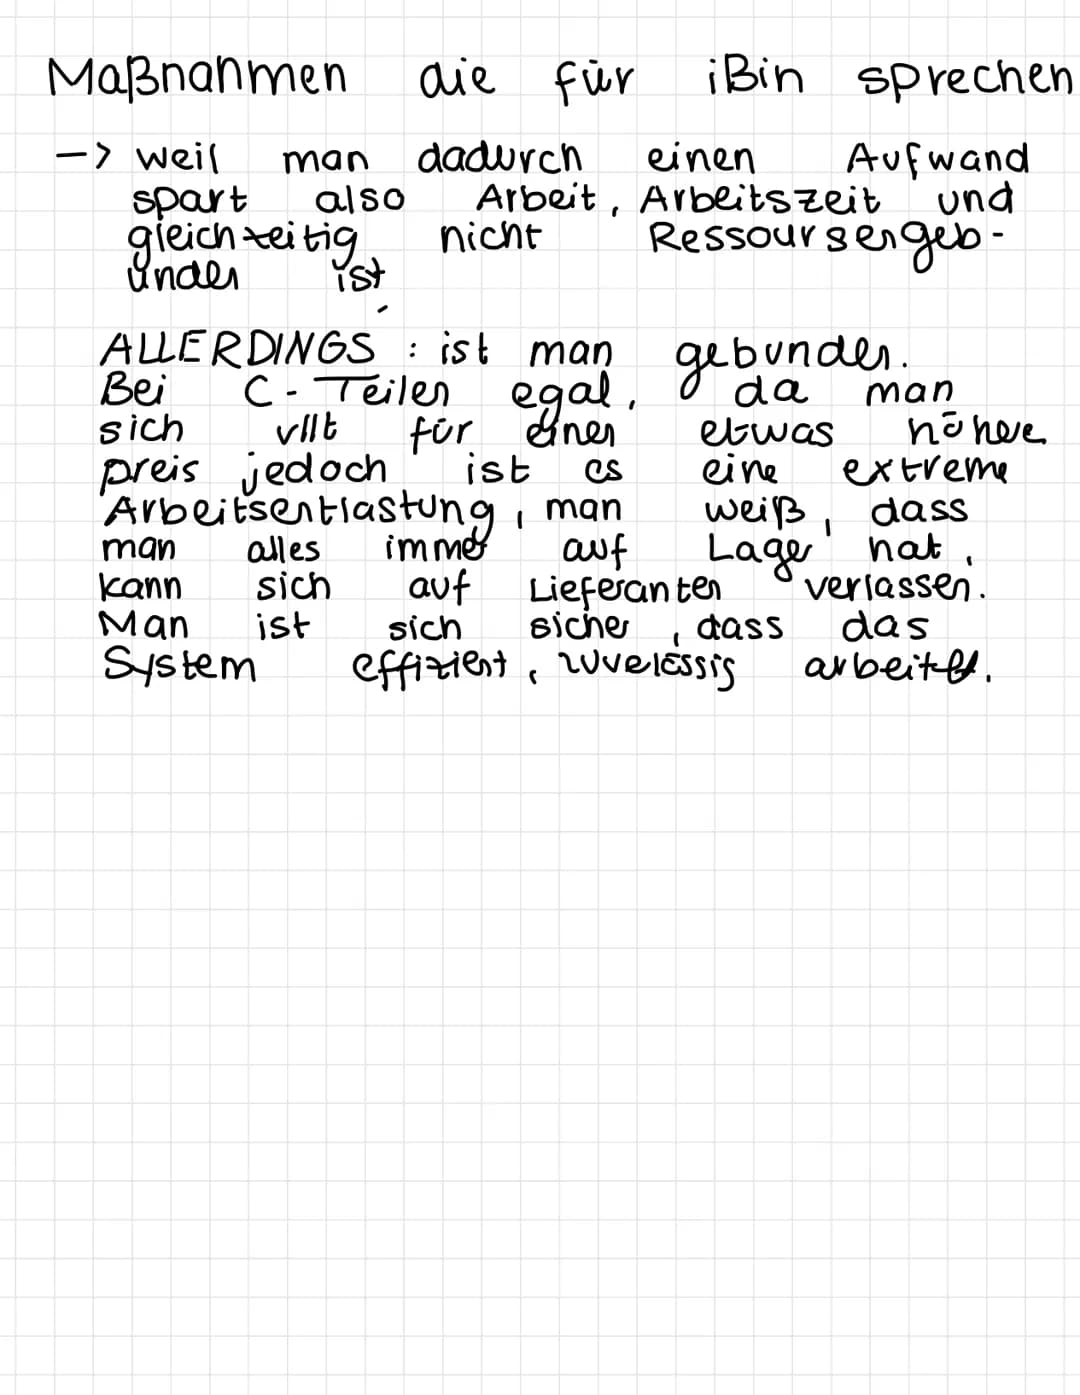 Maßnahmen die für iBin sprechen
-> weil man dadurch einen Aufwand
spart also Arbeit, Arbeitszeit und
gleichzeitig nicht Ressoursengeb-
unden ist
ALLERDINGS : ist man gebunden.
Bei C-Teilen egal, da man
sich vllt für einen etwas höhere
preis jedoch ist es eine extreme
Arbeitsentlastung, man weiß, dass
man alles immer auf Lager hat,
kann sich auf Lieferanten verlassen.
Man ist sich sicher, dass das
System effizient, zuvelässig arbeitet.